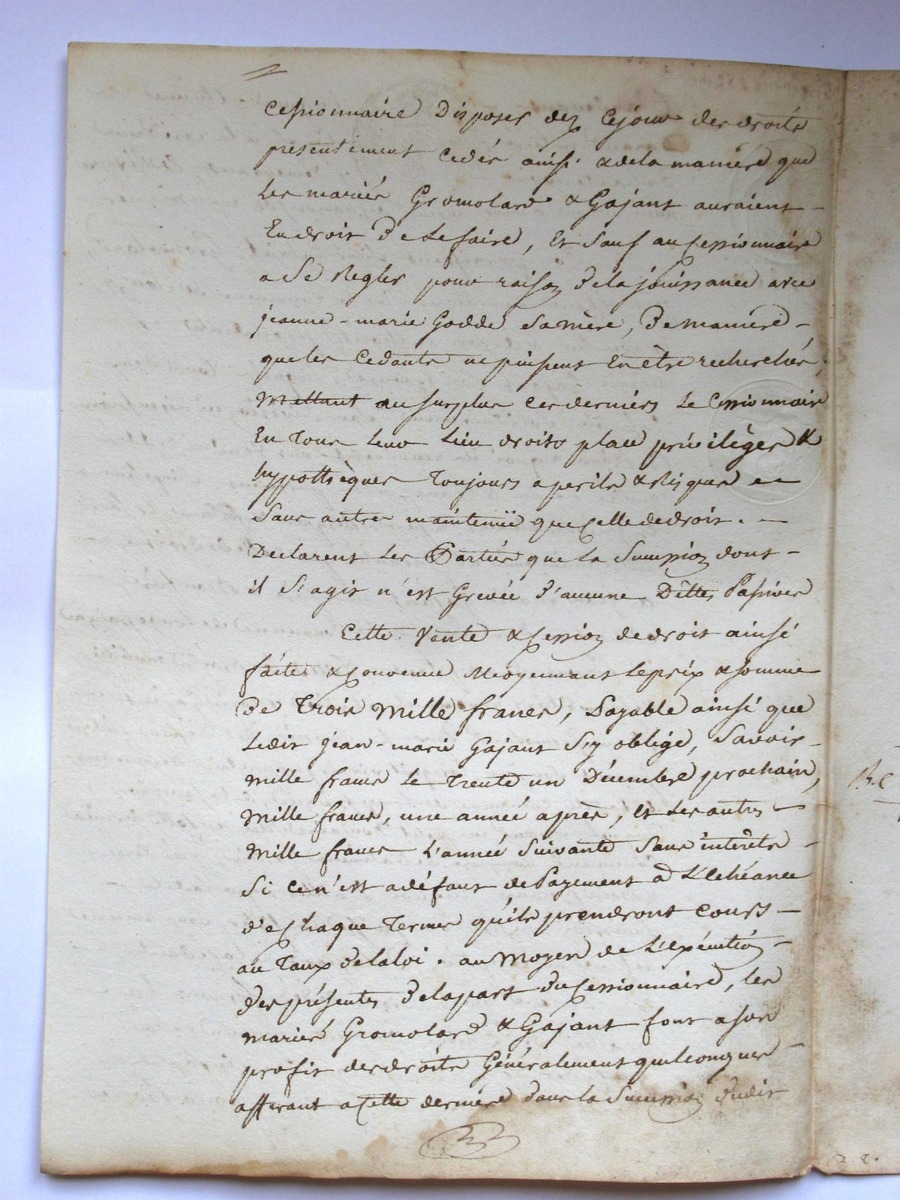 cessionnaire Disposer dez Cejour des droits
presentement cedés ainsi & dela maniere que
Les mariés Gromolard & Gajant auraient
En droit De Le faire, Et Sauf au Cessionnaire
a Se Regler pour raison De la jouissance avec
jeanne-marie Godde Sa mère, De maniere
que les Cedants ne puissent En être recherchés,
Mettant au Surplus Ces derniers Le Cessionnaire
En Tous Leur Lieu droits place privilèges &
hypothèques Toujours a perils & Risques et
Sans autre maintenüe que Celle de droit.
Declarent Les Parties que La Succession dont
il S'agit n'est Grevée d'aucune Dettes Passives
Cette Vente & Cession de droit ainsi
faite & Convenue Moyennant Le prix & Somme
De Trois Mille francs, Payable ainsi que
Ledit Jean-marie Gajant S'y oblige, Savoir
Mille francs Le Trente un Décembre prochain,
Mille francs, une année après, Et Les autres
Mille francs L'année Suivante Sans intérêts
Si Ce n'est a défaut de Payement a L'Echéance
de Chaque Terme qu'ils prendront Cours
au Taux De la loi. au Moyen de L'exécution
des présentes De la part du Cessionnaire, les
mariés Gromolard & Gajant font a son
profit des droits Généralement quelconques
afferant a Cette dernière Dans La Succession Dudit